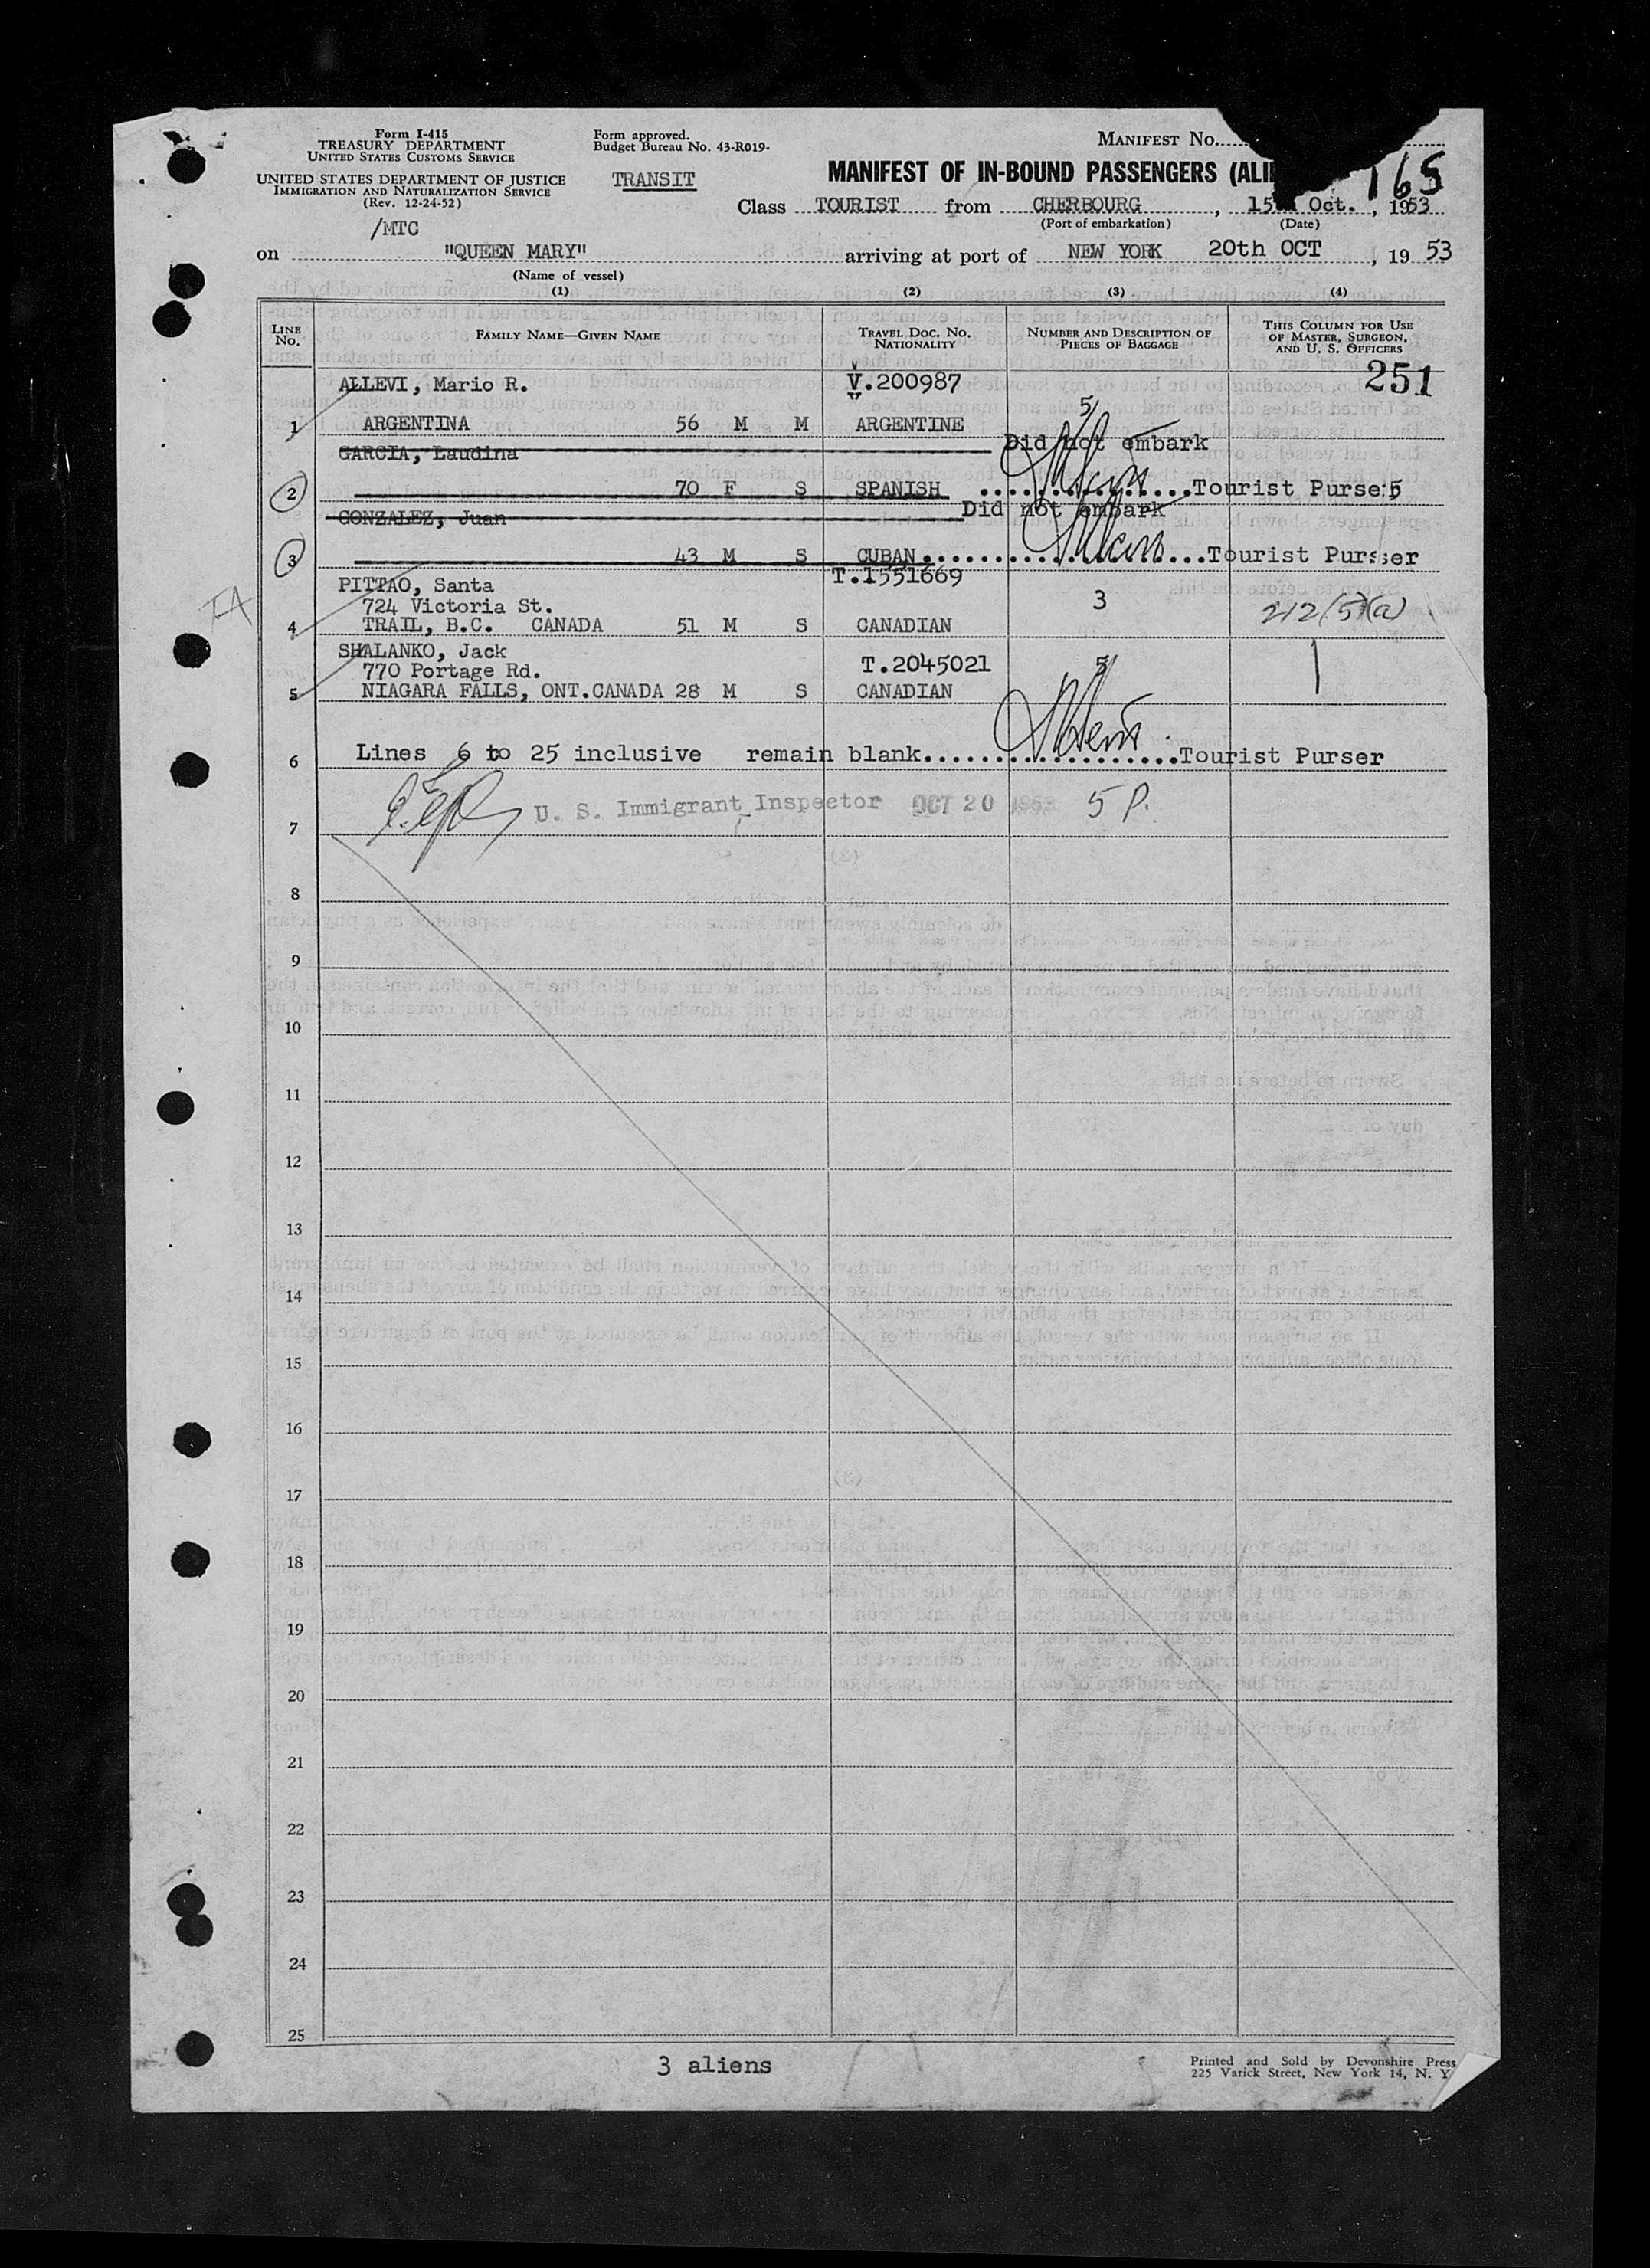 Form I-415
TREASURY DEPARTMENT
UNITED STATES CUSTOMS SERVICE
UNITED STATES DEPARTMENT OF JUSTICE
IMMIGRATION AND NATURALIZATION SERVICE
(Rev. 12-24-52)
/MTC
Form approved.
Budget Bureau No. 43-R019-
TRANSIT
MANIFEST No.
165
MANIFEST OF IN-BOUND PASSENGERS (ALI
Class TOURIST from CHERBOURG, 15 Oct., 1953
(Port of embarkation) (Date)
on "QUEEN MARY" arriving at port of NEW YORK 20th OCT, 19 53
(Name of vessel)
(1) (2) (3) (4)
LINE NO. FAMILY NAME—GIVEN NAME TRAVEL DOC. NO. NATIONALITY NUMBER AND DESCRIPTION OF PIECES OF BAGGAGE THIS COLUMN FOR USE OF MASTER, SURGEON, AND U. S. OFFICERS
251
ALLEVI, Mario R. V.200987
1 ARGENTINA 56 M M ARGENTINE 5
GARCIA, Laudina Did not embark
2 70 F S SPANISH ..............Tourist Purser
GONZALEZ, Juan Did not embark
3 43 M S CUBAN..................Tourist Purser
PITTAO, Santa T.1551669
724 Victoria St. 3 212(5)(a)
4 TRAIL, B.C. CANADA 51 M S CANADIAN
SHALANKO, Jack
770 Portage Rd. T.2045021 5
5 NIAGARA FALLS, ONT.CANADA 28 M S CANADIAN
6 Lines 6 to 25 inclusive remain blank..................Tourist Purser
U. S. Immigrant Inspector OCT 20 1953 5 P.
7
8
9
10
11
12
13
14
15
16
17
18
19
20
21
22
23
24
25
3 aliens
Printed and Sold by Devonshire Press
225 Varick Street, New York 14, N. Y